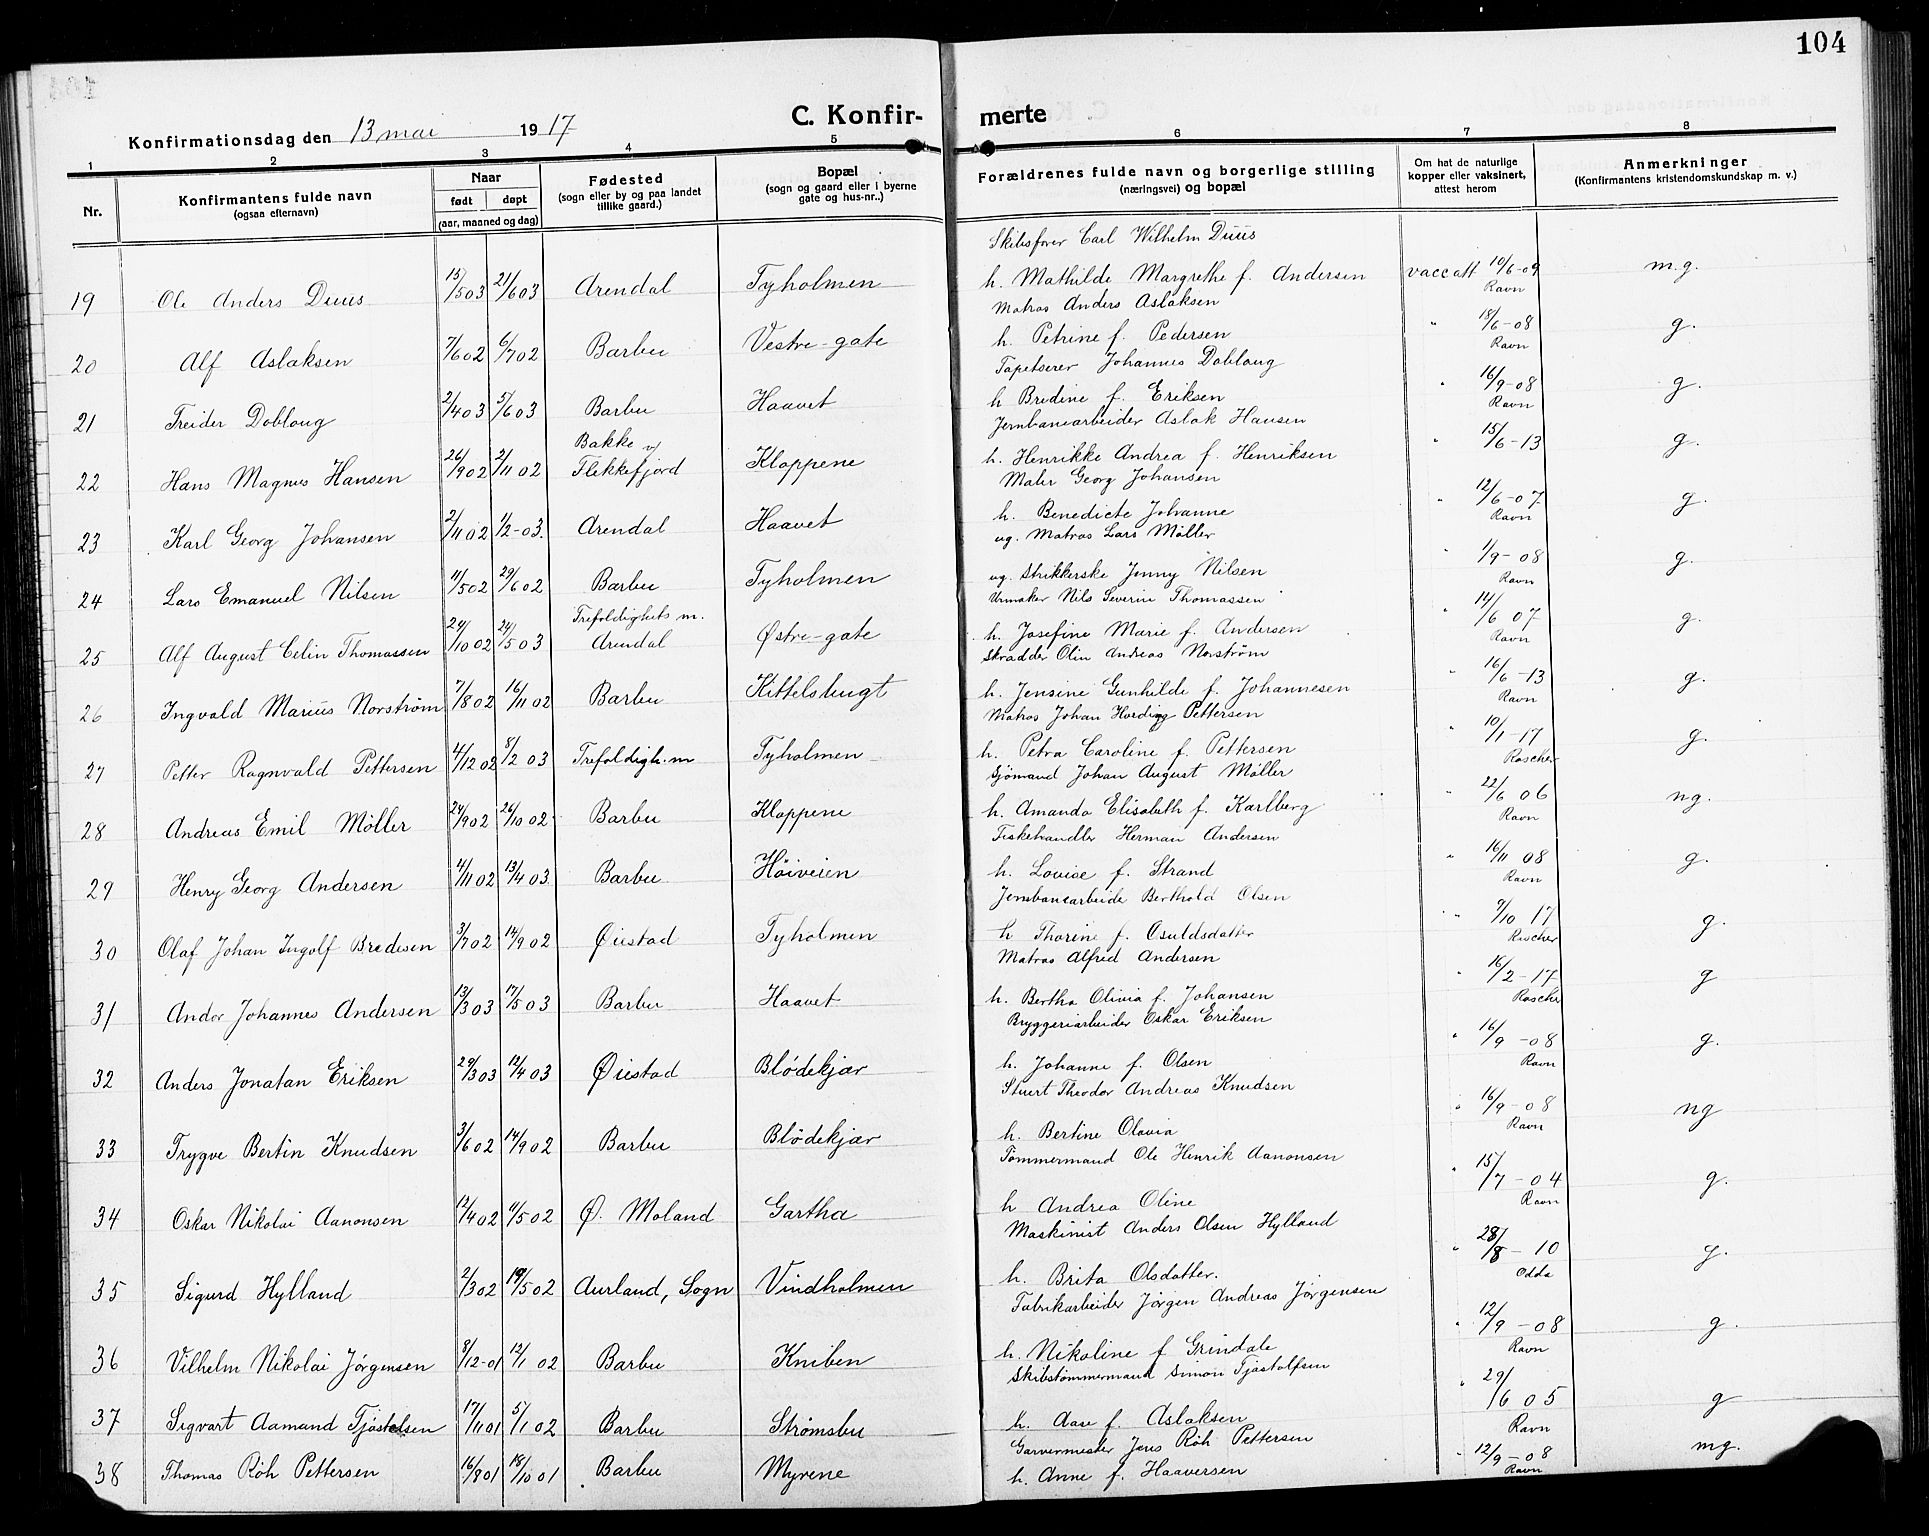 104
C. Konfir-
merte
Konfirmationsdag den 13 mai 1917
1 2 3 4 5 6 7 8
Nr.
Konfirmantens fulde navn
(ogsaa efternavn)
Naar
født døpt
(aar, maaned og dag)
Fødested
(sogn eller by og paa landet
tillike gaard.)
Bopæl
(sogn og gaard eller i byerne
gate og hus-nr..)
Forældrenes fulde navn og borgerlige stilling
(næringsvei) og bopæl
Om hat de naturlige
kopper eller vaksinert,
attest herom
Anmerkninger
(Konfirmantens kristendomskundskap m. v.)
Skibsfører Carl Wilhelm Duus
19 Ole Anders Duus 15/5 03 21/6 03 Arendal Tyholmen h. Mathilde Margrethe f. Andersen vaccatt 10/6-09 Ravn m.g.
Matros Anders Aslaksen
20 Alf Aslaksen 7/6 02 6/7 02 Barbu Vestre-gate h. Petrine f. Pedersen " 18/6-08 Ravn g.
Tapetserer Johannes Dobloug
21 Freider Dobloug 2/4 03 5/6 03 Barbu Haavet h Bredine f. Eriksen " 16/9-08 Ravn g.
Jernbanearbeider Aslak Hansen
22 Hans Magnus Hansen 26/9 02 2/11 02 Bakke v/ Flekkefjord Kloppene h. Henrikke Andrea f. Henriksen " 15/6-13 g.
Maler Georg Johansen
23 Karl Georg Johansen 2/11 02 1/2-03. Arendal Haavet h. Benedicte Johanne " 12/6-07 Ravn g.
ug. Matros Lars Møller
24 Lars Emanuel Nilsen 11/5 02 29/6 02 Barbu Tyholmen ug. Strikkerske Jenny Nilsen " 1/9-08 Ravn g.
Urmaker Nils Severin Thomassen
25 Alf August Celin Thomassen 24/10 02 24/5 03 Trefoldigheds m. Arendal Østre-gate h. Josefine Marie f. Andersen " 14/6 07 Ravn g.
Skrædder Olin Andreas Norstrøm
26 Ingvald Marius Norstrøm 7/8 02 16/11 02 Barbu Kittelsbugt h. Jensine Gunhilde f. Johannesen " 16/6-13 Ravn g.
Matros Johan Harding Pettersen
27 Petter Ragnvald Pettersen 4/12 02 8/2 03 Trefoldigh. m Tyholmen h. Petra Caroline f. Pettersen " 10/1-17 Roscher g.
Sjömand Johan August Møller
28 Andreas Emil Møller 24/9 02 26/10 02 Barbu Kloppene h. Amanda Elisabeth f. Karlberg " 22/6 06 Ravn ng.
Fiskehandler Herman Andersen
29 Henry Georg Andersen 4/11 02 13/4 03 Barbu Høiveien h. Lovise f. Strand " 16/11 08 Ravn g.
Jernbanearbeider Berthold Olsen
30 Olaf Johan Ingolf Bredesen 3/7 02 14/9 02 Øiestad Tyholmen h Thorine f. Osuldsdatter " 9/10 17 Roscher g.
Matros Alfred Andersen
31 Andor Johannes Andersen 13/3 03 17/5 03 Barbu Haavet h. Bertha Olivia f. Johansen " 16/2-17 Roscher g
Bryggeriarbeider Oskar Eriksen
32 Anders Jonatan Eriksen 29/3 03 12/4 03 Øiestad Blödekjær h. Johanne f. Olsen " 16/9-08 Ravn g.
Stuert Theodor Andreas Knudsen
33 Trygve Bertin Knudsen 3/6 02 14/9 02 Barbu Blödekjær h. Bertine Olavia " 16/9-08 Ravn ng
Tömmermand Ole Henrik Aanonsen
34 Oskar Nikolai Aanonsen 12/4 02 11/5 02 Ø. Moland Gartha h Andrea Oline " 15/7-04 Ravn g.
Maskinist Anders Olsen Hylland
35 Sigurd Hylland 2/3 02 19/5 02 Aurland, Sogn Vindholmen h. Brita Olsdatter. " 28/8-10 Odda g.
Fabrikarbeider Jørgen Andreas Jørgensen
36 Vilhelm Nikolai Jørgensen 8/12-01 12/1 02 Barbu Kniben h. Nikoline f Grindale " 12/9-08 Ravn g.
Skibstømmermand Simon Tjøstolfsen
37 Sigvart Aamand Tjøstolsen 17/11 01 5/1 02 Barbu Strømsbu h. Aase f. Aslaksen " 29/6 05 Ravn g
Garvermester Jens Röh Pettersen
38 Thomas Röh Pettersen 16/8 01 18/10 01 Barbu Myrene h. Anne f. Haaversen " 12/9-08 Ravn mg.